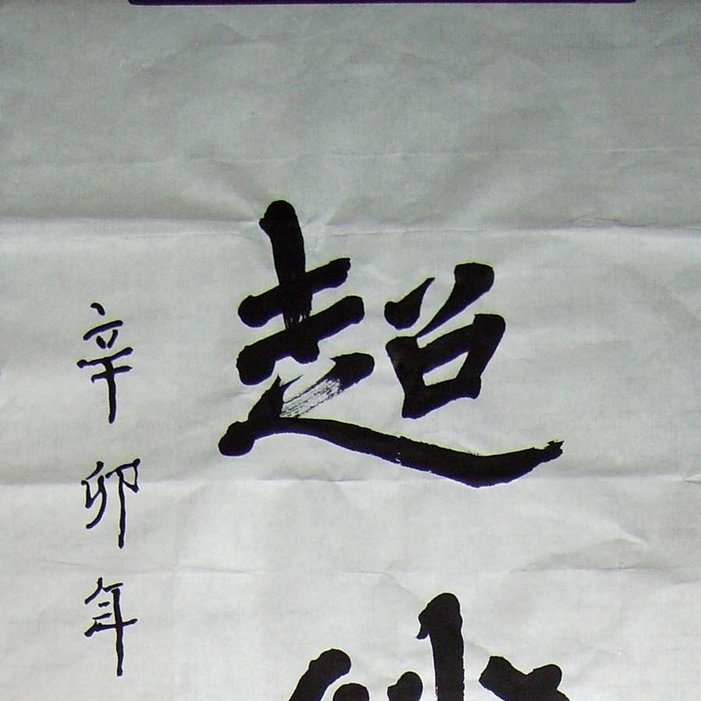 超
辛卯年